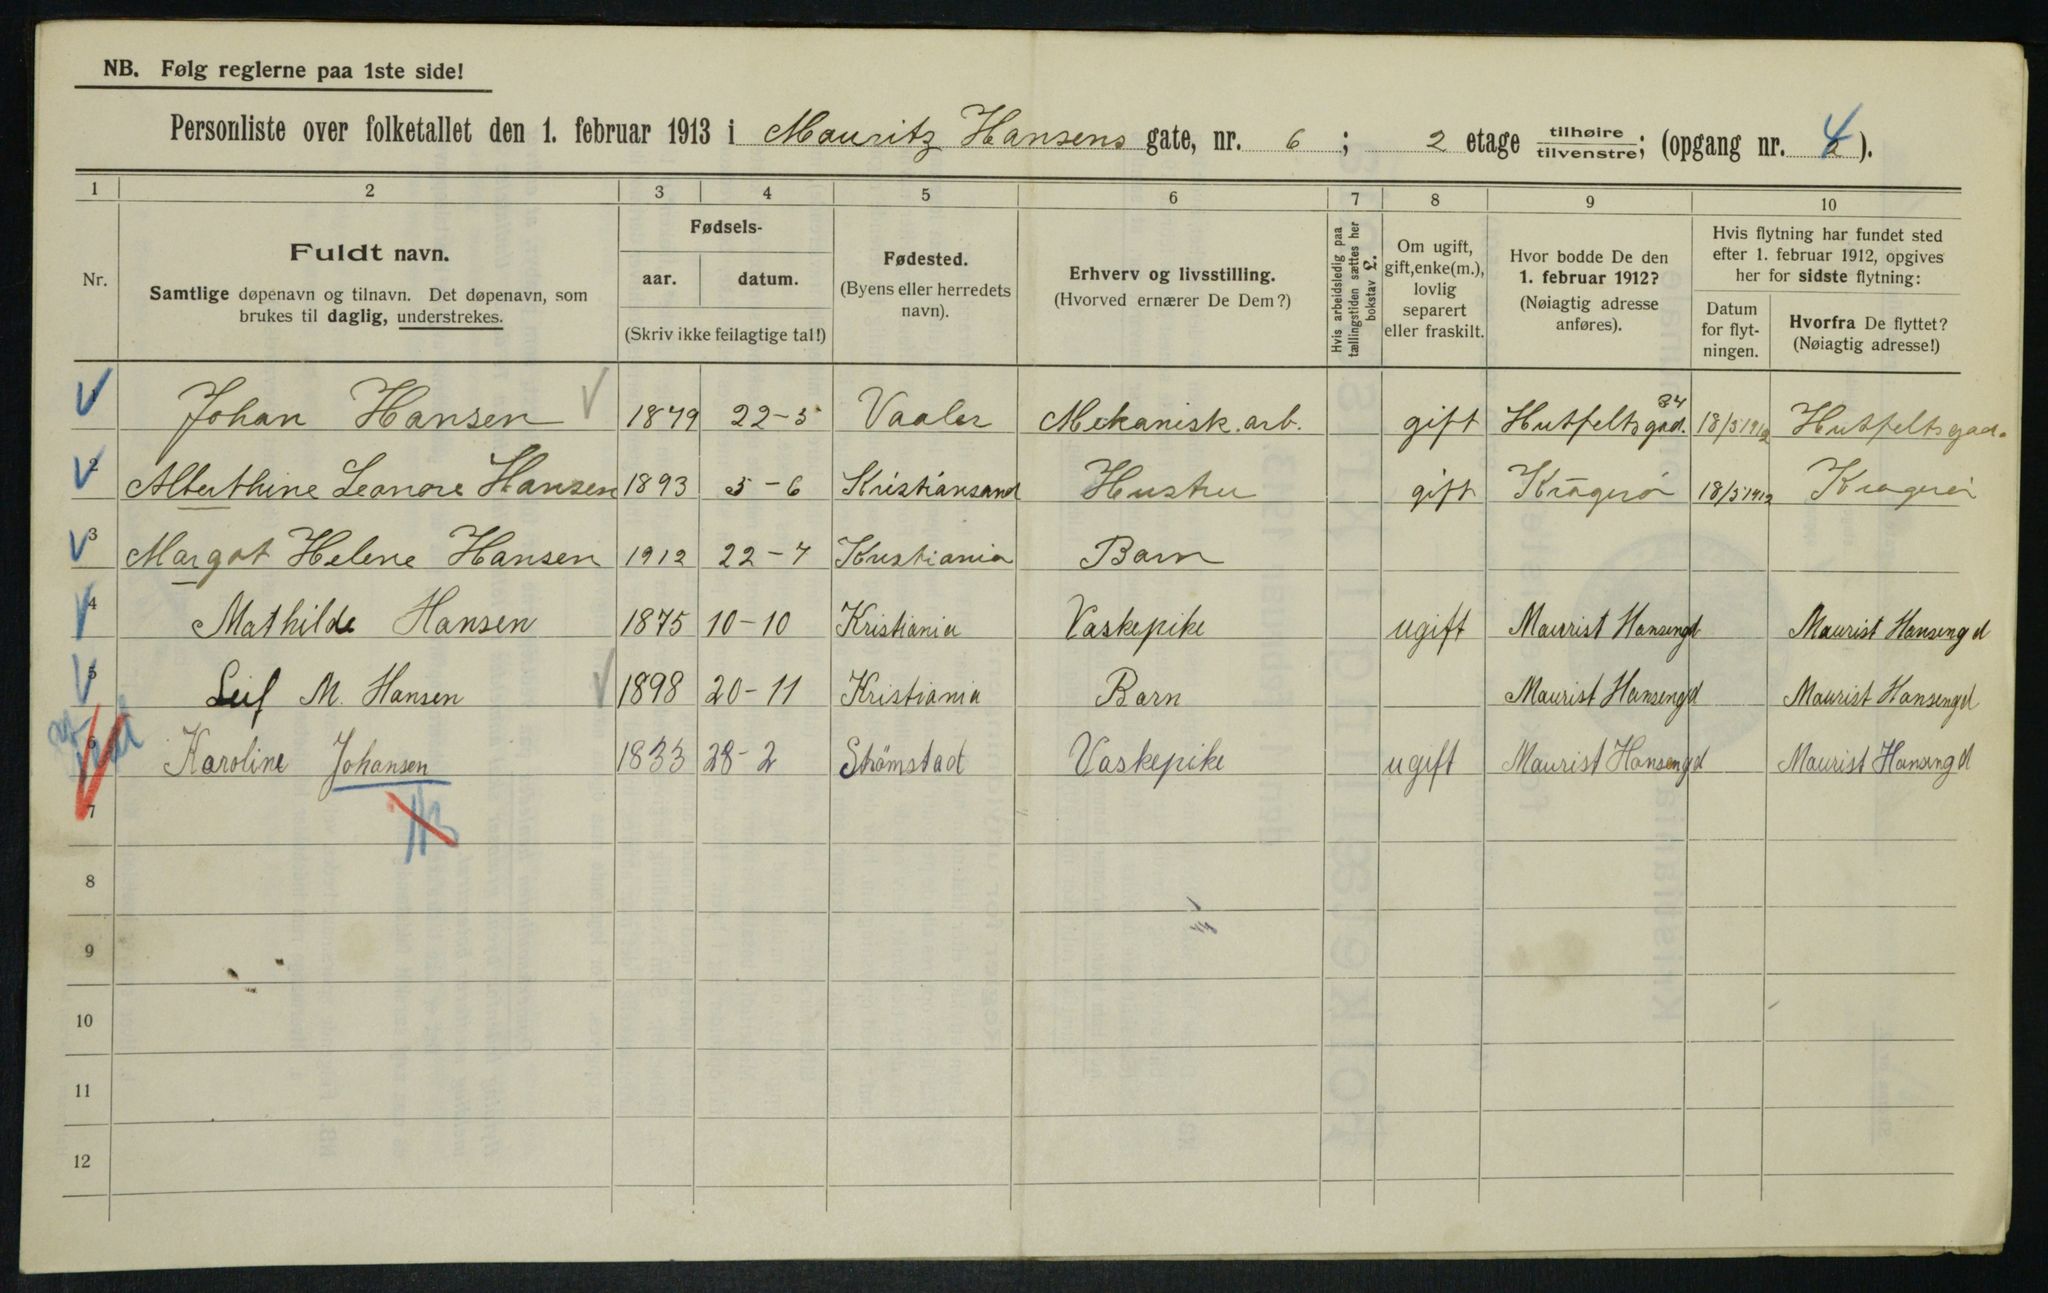 NB. Følg reglerne paa 1ste side!
Personliste over folketallet den 1. februar 1913 i Mauritz Hansens gate, nr. 6 ; 2 etage tilhøire/tilvenstre; (opgang nr. 4 ).
1 2 3 4 5 6 7 8 9 10
Nr.
Fuldt navn.
Samtlige døpenavn og tilnavn. Det døpenavn, som
brukes til daglig, understrekes.
Fødsels-
aar. datum.
(Skriv ikke feilagtige tal!)
Fødested.
(Byens eller herredets
navn).
Erhverv og livsstilling.
(Hvorved ernærer De Dem?)
Hvis arbeidsledig paa
tællingstiden sættes her
bokstav L.
Om ugift,
gift, enke(m.),
lovlig
separert
eller fraskilt.
Hvor bodde De den
1. februar 1912?
(Nøiagtig adresse
anføres).
Hvis flytning har fundet sted
efter 1. februar 1912, opgives
her for sidste flytning:
Datum
for flyt-
ningen.
Hvorfra De flyttet?
(Nøiagtig adresse!)
1 Johan Hansen 1879 22-5 Vaaler Mekanisk. arb. gift Huitfeltsgad. 34 18/5 1912 Huitfeltsgad.
2 Alberthine Leonore Hansen 1893 5-6 Kristiansand Hustru gift Kragerø 18/5 1912 Kragerø
3 Margot Helene Hansen 1912 22-7 Kristiania Barn
4 Mathilde Hansen 1875 10-10 Kristiania Vaskepike ugift Maurist Hansengd Maurist Hansengd
5 Leif M. Hansen 1898 20-11 Kristiania Barn Maurist Hansengd Maurist Hansengd
6 Karoline Johansen 1833 28-2 Strømstad Vaskepike ugift Maurist Hansengd Maurist Hansengd
7
8
9
10
11
12